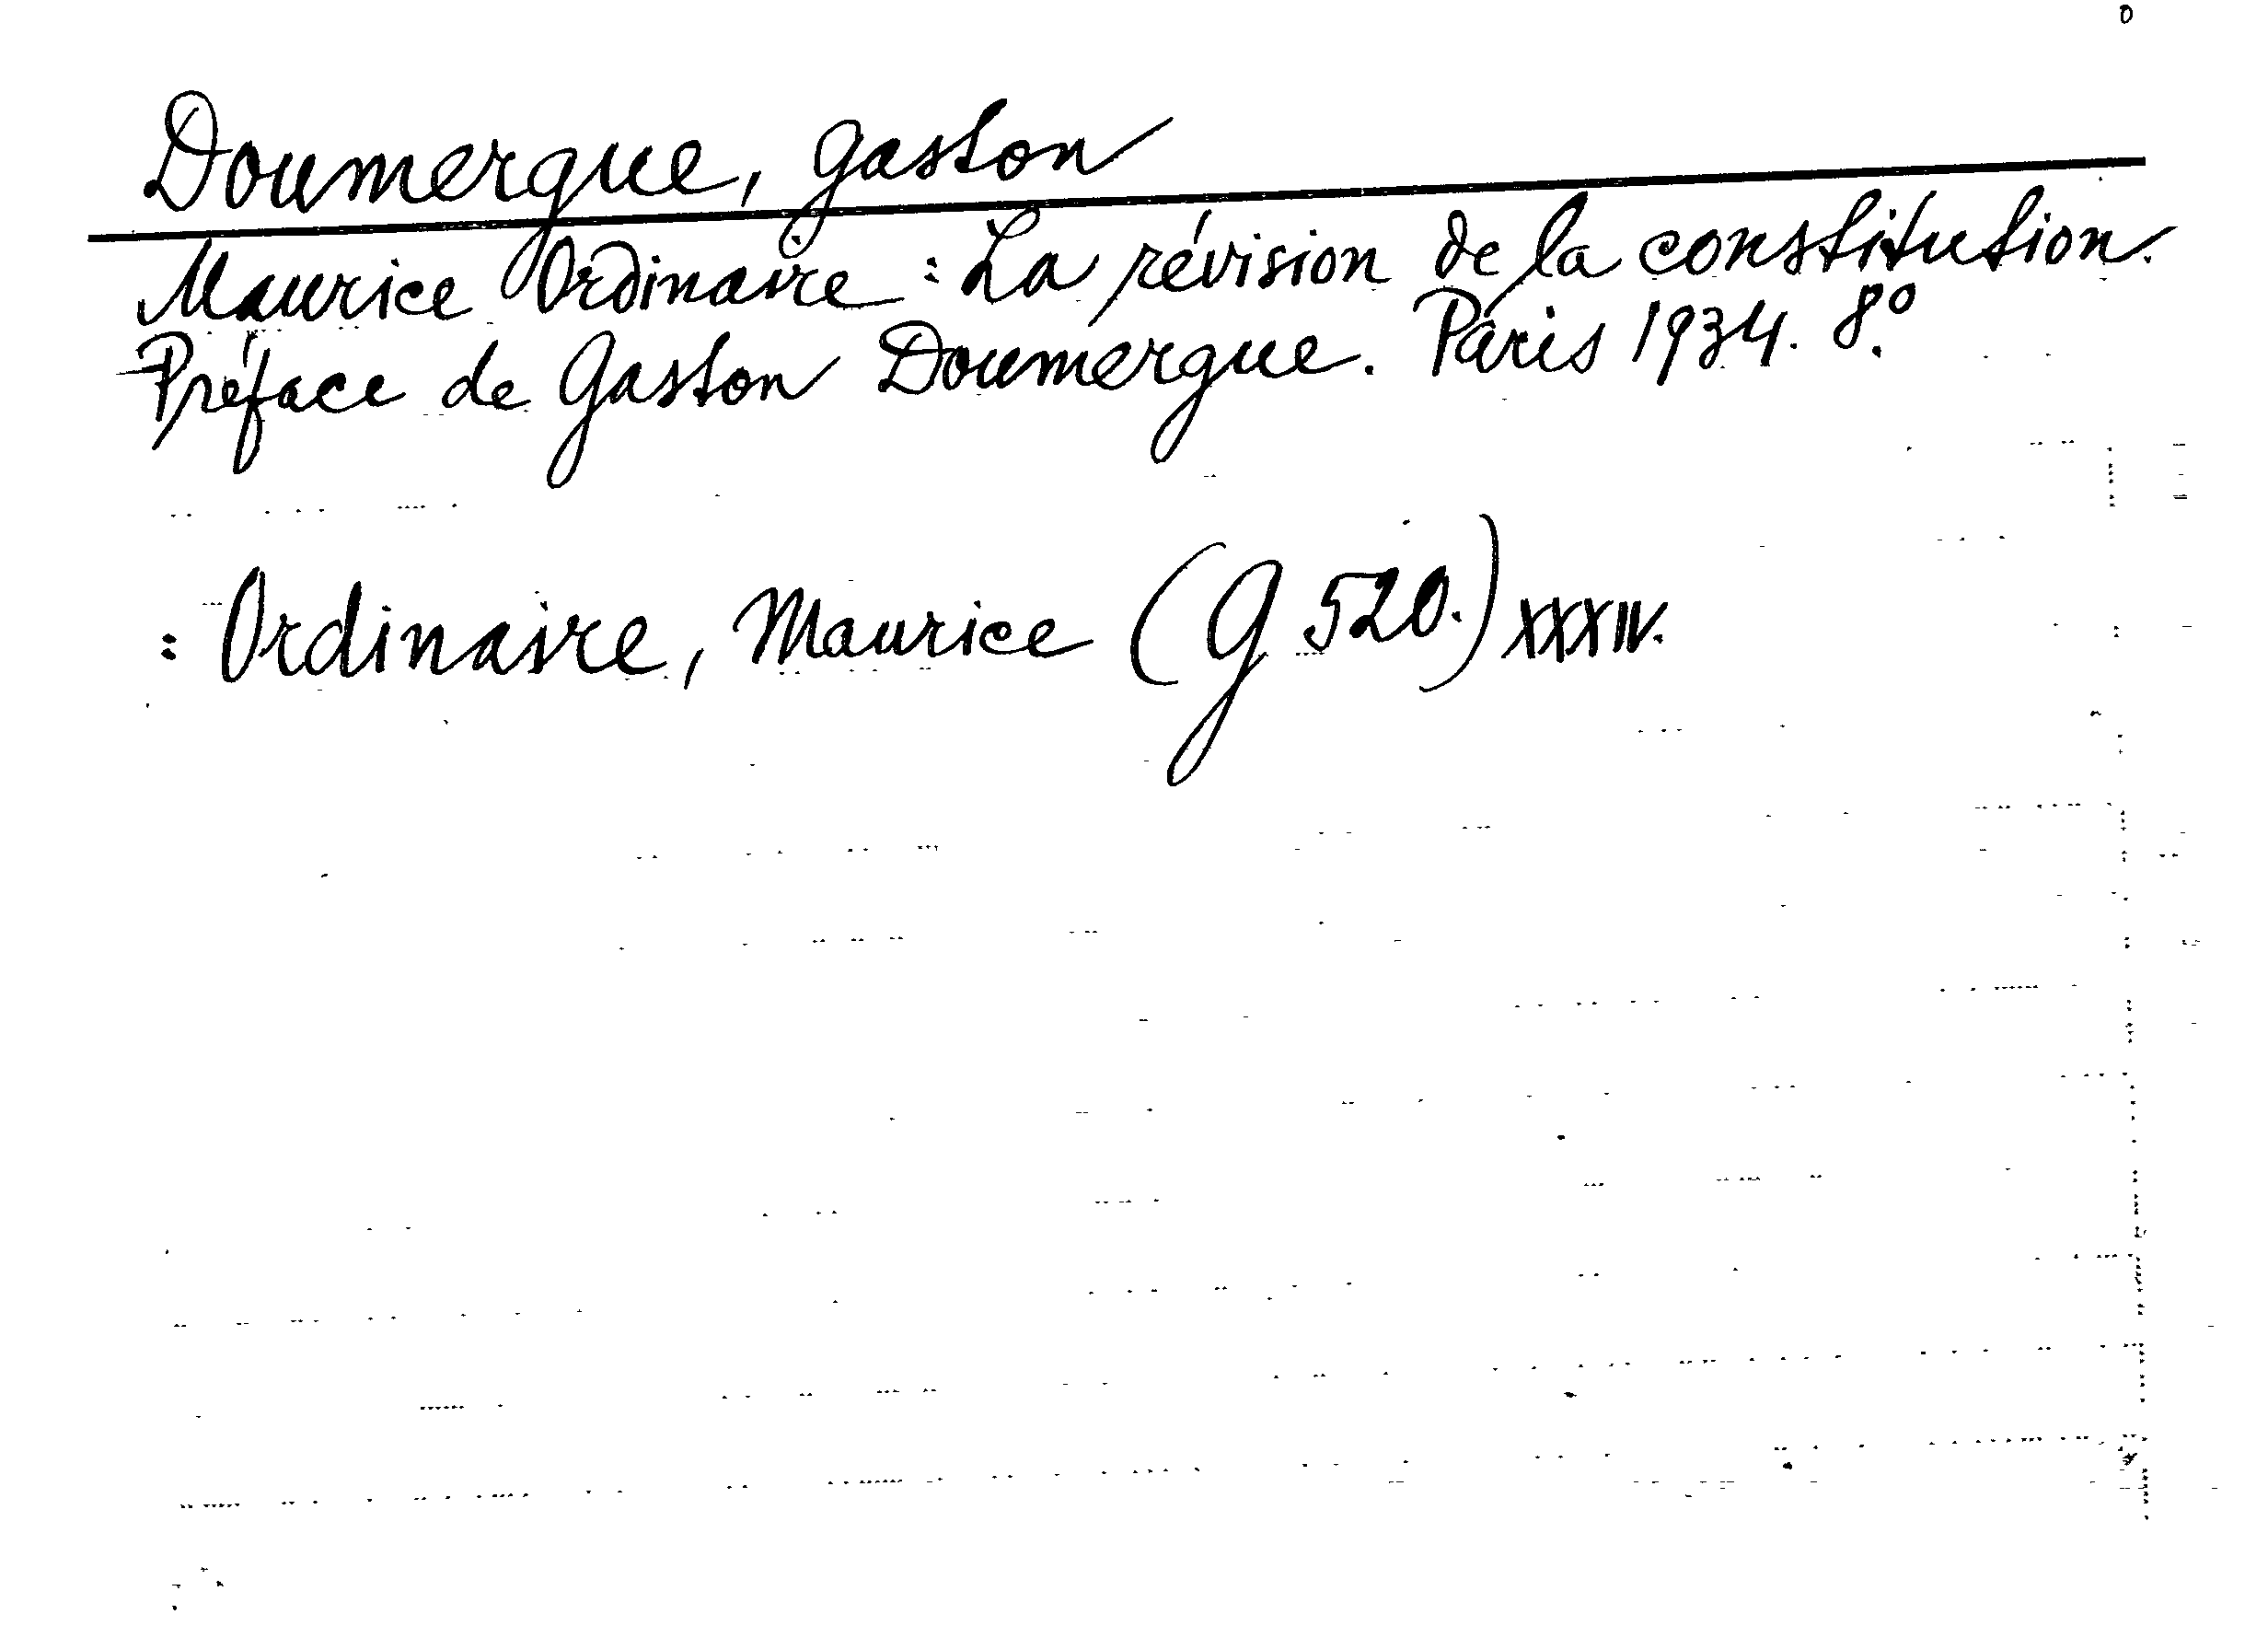 Doumergue, Gaston
Maurice Ordinaire : La révision de la constitution.
Préface de Gaston Doumergue. Paris 1934. 8º.
: Ordinaire, Maurice (G 520.) XXXIV.